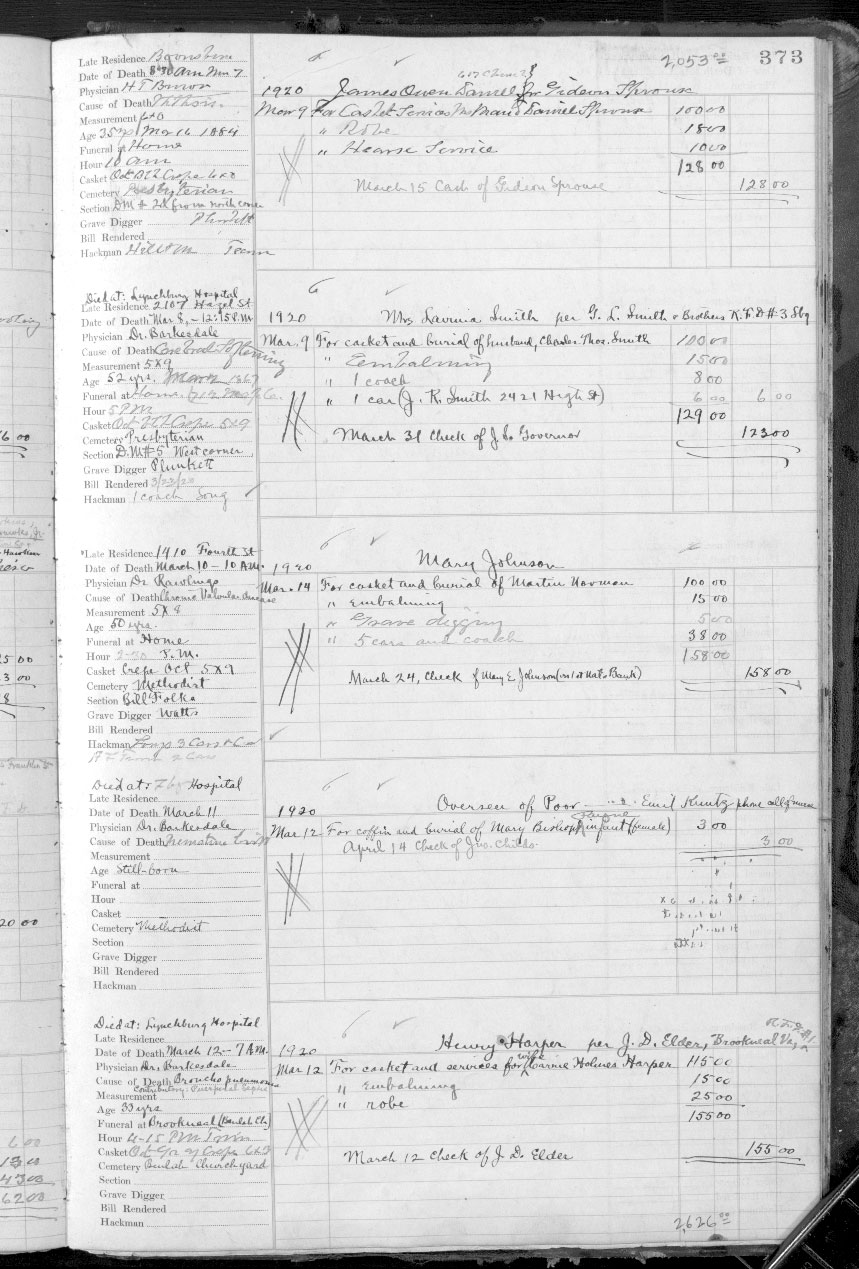 2,053.00
373
Late Residence
Date of Death 8:30 am Mar 7
Physician
Cause of Death
Measurement 6+0
Age 35 yrs Mar 16 1884
Funeral at Home
Hour 10 am
Casket Oct Crepe 6x0
Cemetery Presbyterian
Section DM # 2d from north corner
Grave Digger Plunkett
Bill Rendered
Hackman Team
1920 James Owen Daniel Gideon Sprouse
Mar 9 For Casket Services Mrs Maud Daniel Sprouse 100 00
" Robe 18 00
" Hearse Service 10 00
128 00
March 15 Cash of Gideon Sprouse 128 00
Died at: Lynchburg Hospital
Late Residence 2107 Hazel St
Date of Death Mar 8, - 12:15 P.M.
Physician Dr. Barkesdale
Cause of Death Cerebral Softening
Measurement 5x9
Age 52 yrs. March 1867
Funeral at Home
Hour 5 P.M
Casket Oct Crepe 5x9
Cemetery Presbyterian
Section D.M #5 West corner
Grave Digger Plunkett
Bill Rendered 3/23/20
Hackman 1 coach Long
1920 Mrs Lavinia Smith per G. L. Smith & Brothers R.F.D #3 Lbg
Mar. 9 For casket and burial of husband, Charles Thos. Smith 100 00
" Eembalming 15 00
" 1 coach 8 00
" 1 car (J. R. Smith 2421 High St) 6 00 6 00
129 00
March 31 Check of J. C. Governor 123 00
Late Residence 1410 Fourth St
Date of Death March 10 - 10 A.M.
Physician Dr Rawlings
Cause of Death Chronic Valvular disease
Measurement 5x8
Age 50 yrs.
Funeral at Home
Hour 2-30 P.M.
Casket Crepe Oct 5x9
Cemetery Methodist
Section Bill Folks
Grave Digger Watts
Bill Rendered
Hackman Longs 3 Cars
1920 Mary Johnson
Mar. 14 For casket and burial of Martin Norman 100 00
" Embalming 15 00
" Grave digging 5 00
" 5 cars and coach 38 00
158 00
March 24, Check of Mary E. Johnson (on 1st Nat'l Bank) 158 00
Died at: Hospital
Late Residence
Date of Death March 11
Physician Dr. Barkesdale
Cause of Death Premature birth
Measurement
Age Still-born
Funeral at
Hour
Casket
Cemetery Methodist
Section
Grave Digger
Bill Rendered
Hackman
1920 Overseer of Poor Emil Kuntz phone call of nurse
Mar 12 For coffin and burial of Mary Bishop infant (female) 3 00
April 14 Check of Jno. Childs 3 00
Died at: Lynchburg Hospital
Late Residence
Date of Death March 12 - 7 A.M.
Physician Dr. Barkesdale
Cause of Death Broncho pneumonia
Contributory: Puerperal Sepsis
Measurement
Age 33 yrs
Funeral at Brookneal (Beulah Ch.)
Hour 4-15 P.M Train
Casket Oct Gray Crepe 6x3
Cemetery Beulah Churchyard
Section
Grave Digger
Bill Rendered
Hackman
1920 Henry Harper per J. D. Elder, Brookneal Va, R.F.D. #1
Mar 12 For casket and services for wife Carrie Holmes Harper 115 00
" Embalming 15 00
" robe 25 00
155 00
March 12 Check of J. D. Elder 155 00
2,626.00